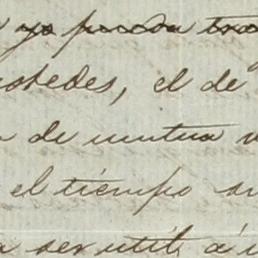 yo pueda
ustedes, el de
de mutua
el tiempo
ser util, á